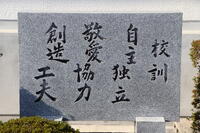 校訓
自主独立
敬愛協力
創造工夫